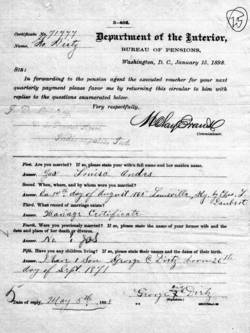 3-402.
Certificate No. 71977
Geo Dirtz
Department of the Interior,
BUREAU OF PENSIONS,
Washington, D. C., January 15, 1898.
SIR:
In forwarding to the pension agent the executed voucher for your next
quarterly payment please favor me by returning this circular to him with
replies to the questions enumerated below.
Very respectfully,
Commissioner.
First. Are you married? If so, please state your wife's full name and her maiden name.
Answer. Yes Louisa Andes
Second. When, where, and by whom were you married?
Answer. day of August Louisville, Ky. by
Third. What record of marriage exists?
Answer. Marriage Certificate
Fourth. Were you previously married? If so, please state the name of your former wife and the
date and place of her death or divorce.
Answer. No
Fifth. Have you any children living? If so, please state their names and the dates of their birth.
Answer. I have 1 Son George C Dirtz born 26th
day of Sept. 1871
Date of reply, May 5th, 189
George Dirtz